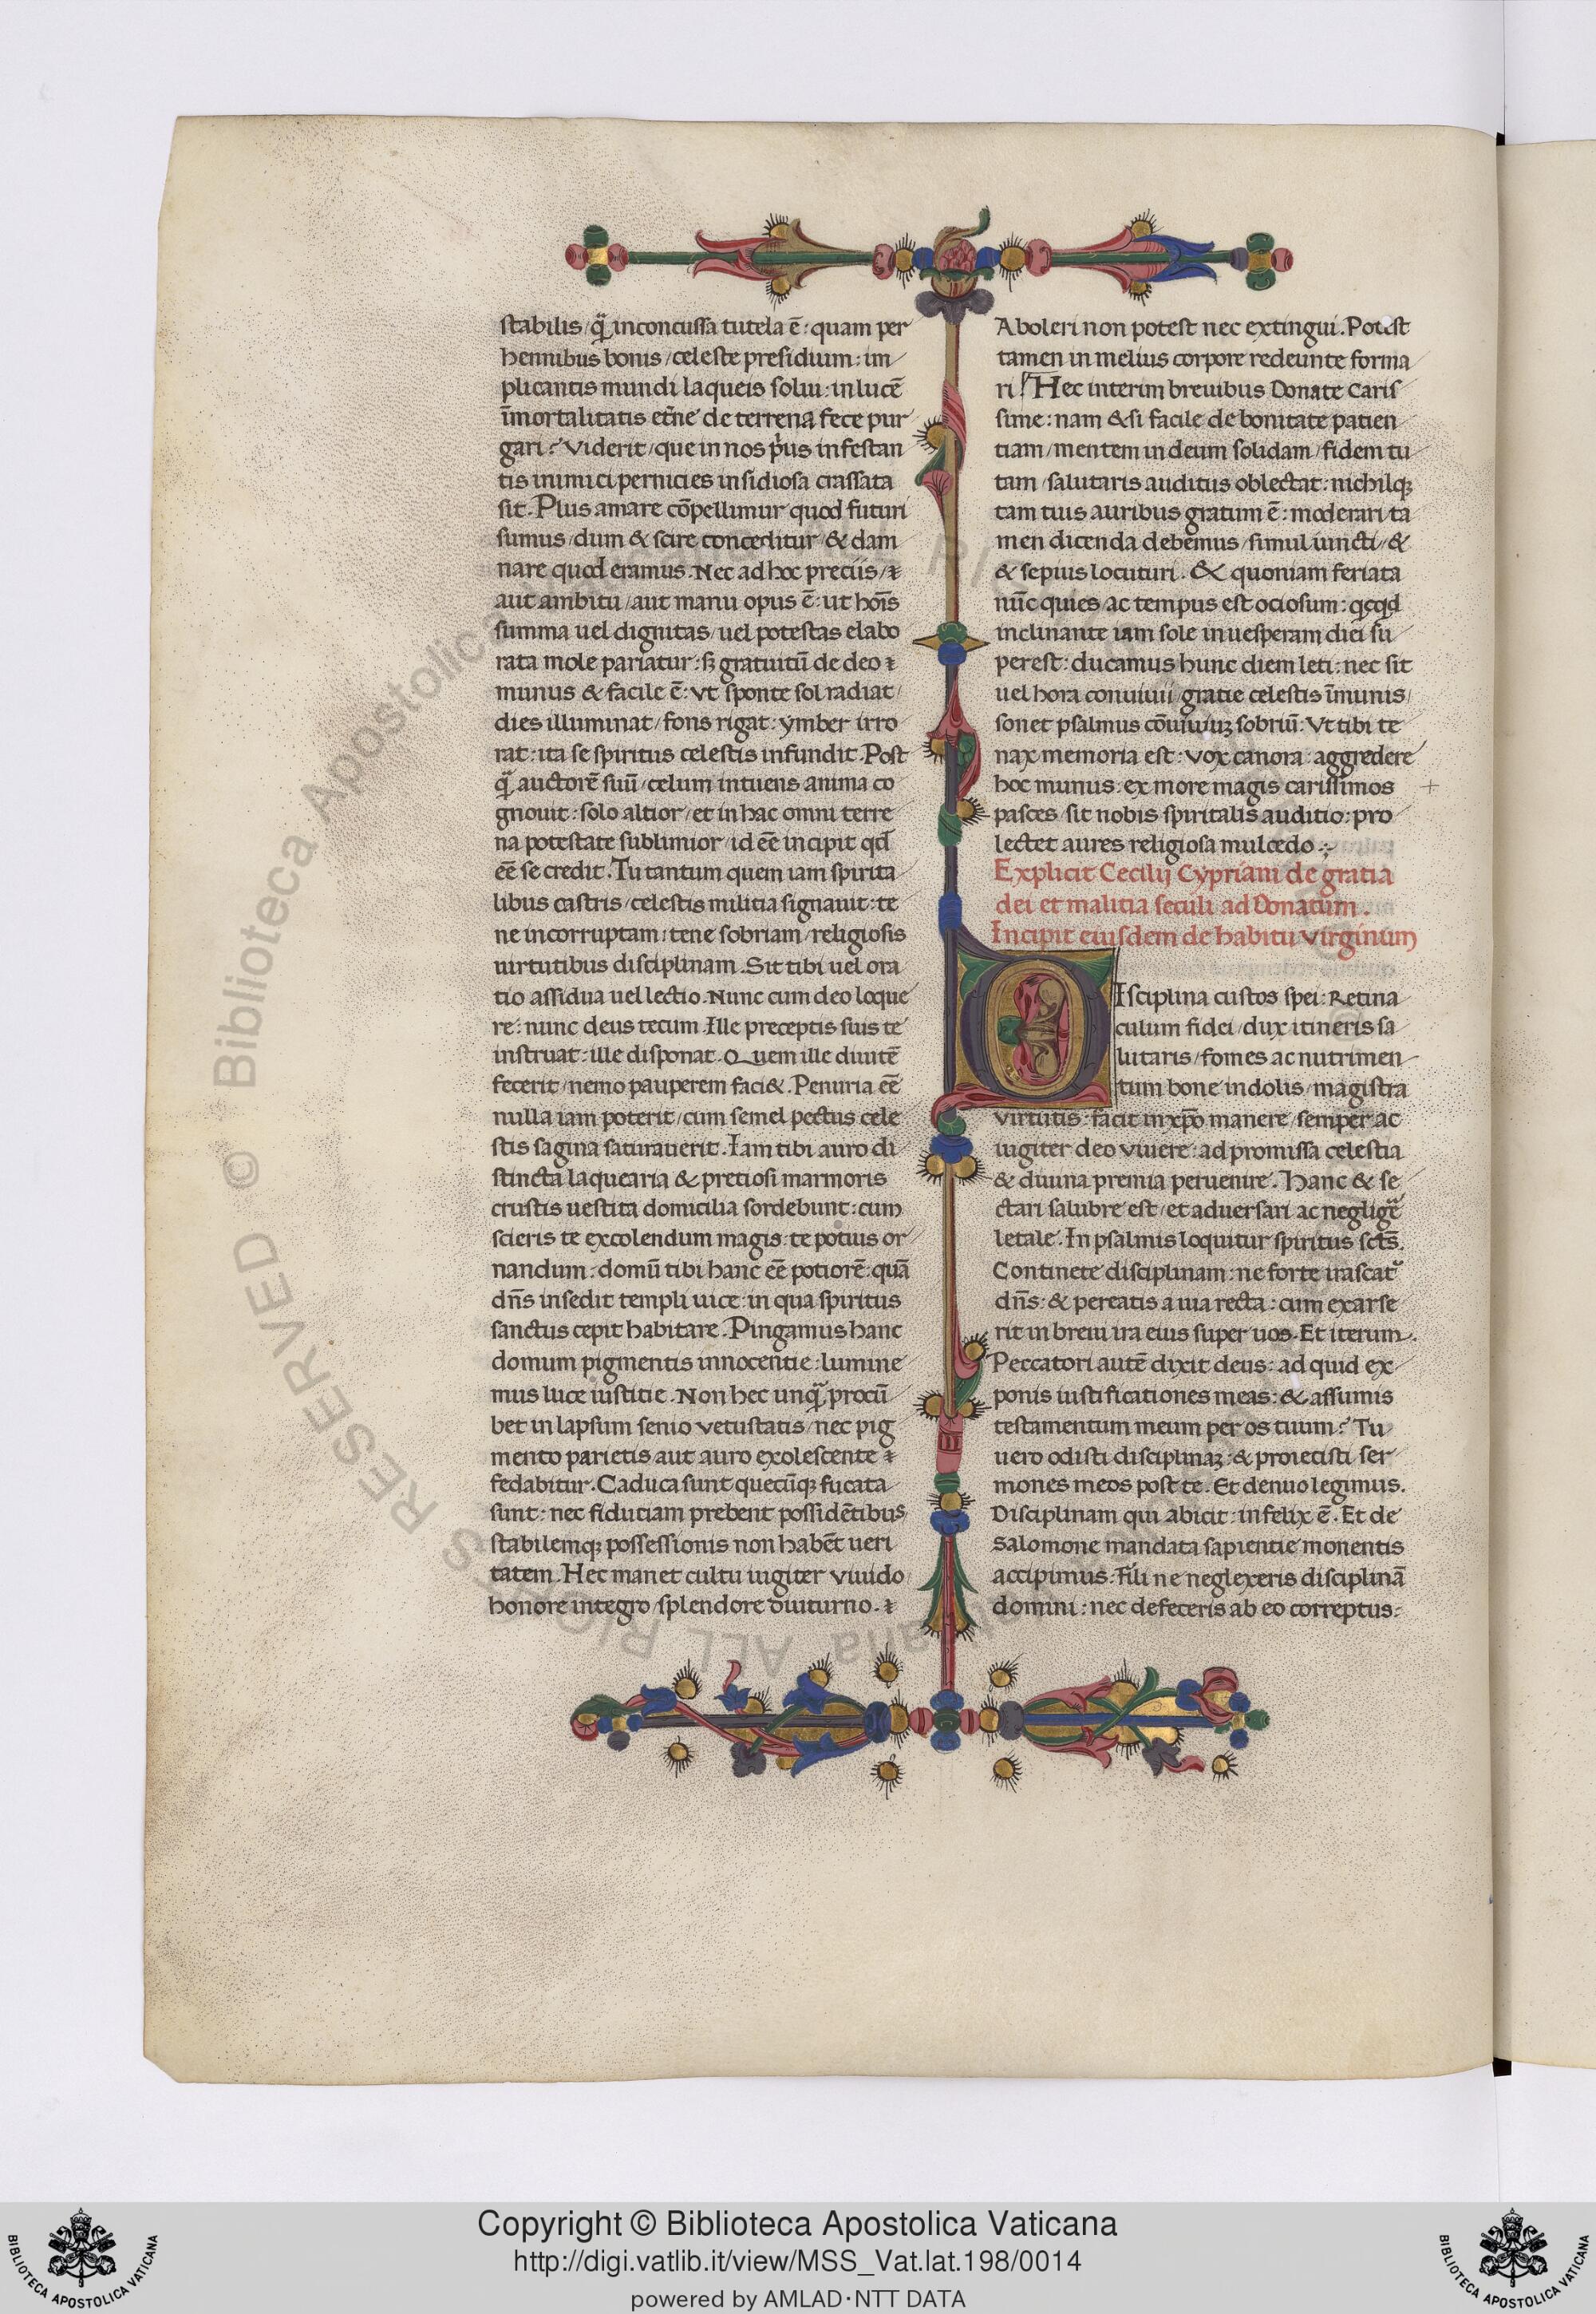 stabilis / q̃ inconcussa tutela ē: quam per
hennibus bonis / celeste presidium: im
plicantis mundi laqueis solui: in lucē
īmortalitatis et̄ne de terrena fece pur
gari? Viderit / que in nos p̄us infestan
tis inimici pernicies insidiosa crassata
sit. Plus amare cōpellimur quod futuri
sumus / dum & scire conceditur / & dam
nare quod eramus. Nec ad hoc preciis /
aut ambitu / aut manu opus ē: ut hoīs
summa uel dignitas / uel potestas elabo
rata mole pariatur: sꝫ gratuitū de deo
munus & facile ē: Vt sponte sol radiat /
dies illuminat / fons rigat: ymber irro
rat: ita se spiritus celestis infundit. Post
q̃ auctorē suū / celum intuens anima co
gnouit: solo altior / et in hac omni terre
na potestate sublimior / id eē incipit qd
eē se credit. Tu tantum quem iam spirita
libus castris / celestis militia signauit: te
ne incorruptam: tene sobriam / religiosis
uirtutibus disciplinam. Sit tibi uel ora
tio assidua uel lectio. Nunc cum deo loque
re: nunc deus tecum. Ille preceptis suis te
instruat: ille disponat. Quem ille diuitē
fecerit / nemo pauperem faci&. Penuria eē
nulla iam poterit / cum semel pectus cele
stis sagina saturauerit. Iam tibi auro di
stincta laquearia & pretiosi marmoris
crustis uestita domicilia sordebunt: cum
scieris te excolendum magis: te potius or
nandum: domū tibi hanc eē potiorē: quā
dn̄s insedit templi uice: in qua spiritus
sanctus cepit habitare. Pingamus hanc
domum pigmentis innocentie: lumine
mus luce iustitie. Non hec unq̃ procū
bet in lapsum senio vetustatis / nec pig
mento parietis aut auro exolescente
fedabitur. Caduca sunt quecūqꝫ fucata
sunt: nec fiduciam prebent possidētibus
stabilemqꝫ possessionis non habēt ueri
tatem. Hec manet cultu iugiter viuido
honore integro / splendore diuturno.
Aboleri non potest nec extingui. Potest
tamen in melius corpore redeunte forma
ri. Hec interim breuibus Donate Caris
sime: nam &si facile de bonitate patien
tiam / mentem in deum solidam / fidem tu
tam / salutaris auditus oblectat: nichilqꝫ
tam tuis auribus gratum ē: moderari ta
men dicenda debemus / simul iuncti / &
& sepius locuturi. & quoniam feriata
nūc quies / ac tempus est ociosum: qcqd
inclinante iam sole in uesperam diei su
perest: ducamus hunc diem leti: nec sit
uel hora conuiuii / gratie celestis īmunis /
sonet psalmus cōuiuiuꝫ sobriū: Vt tibi te
nax memoria est: vox canora: aggredere
hoc munus: ex more magis carissimos
pasces / sit nobis spiritalis auditio: pro
lectet aures religiosa mulcedo.
Explicit Cecilij Cypriani de gratia
dei et malitia seculi ad Donatum.
Incipit eiusdem de habitu virginum
DIsciplina custos spei: Retina
culum fidei / dux itineris sa
lutaris / fomes ac nutrimen
tum bone indolis / magistra
virtutis: facit in xp̄o manere / semper ac
iugiter deo viuere: ad promissa celestia
& diuina premia peruenire. Hanc & se
ctari salubre est / et aduersari ac negligē
letale. In psalmis loquitur spiritus sct̄s.
Continete disciplinam: ne forte irascat᷑
dn̄s: & pereatis a uia recta: cum exarse
rit in breui ira eius super uos. Et iterum.
Peccatori autē dixit deus: ad quid ex
ponis iustificationes meas: & assumis
testamentum meum per os tuum? Tu
uero odisti disciplinaꝫ: & proiecisti ser
mones meos post te. Et denuo legimus.
Disciplinam qui abicit: infelix ē. Et de
Salomone mandata sapientie monentis
accipimus: Fili ne neglexeris disciplinā
domini: nec defeceris ab eo correptus:
Copyright © Biblioteca Apostolica Vaticana
http://digi.vatlib.it/view/MSS_Vat.lat.198/0014
powered by AMLAD·NTT DATA
BIBLIOTECA APOSTOLICA VATICANA
BIBLIOTECA APOSTOLICA VATICANA